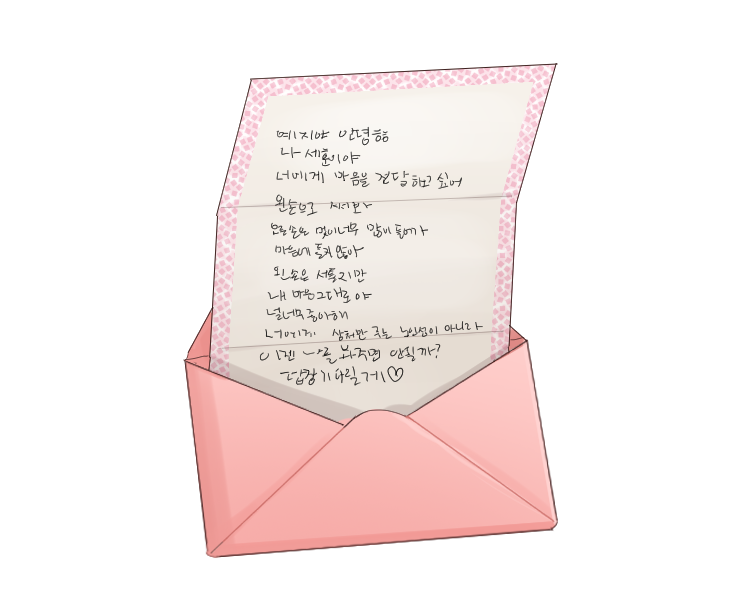 예지야 안녕
나 세훈이야
너에게 마음을 전달하고 싶어
왼손으로 써보다
오른손은 멋이 너무 많이 들어가
마음에 들지 않아
왼손은 서툴지만
내 마음 그대로야
널 너무 좋아해
너에게 상처만 주는 그놈이 아니라
이젠 나를 봐주면 안될까?
답장 기다릴게♡